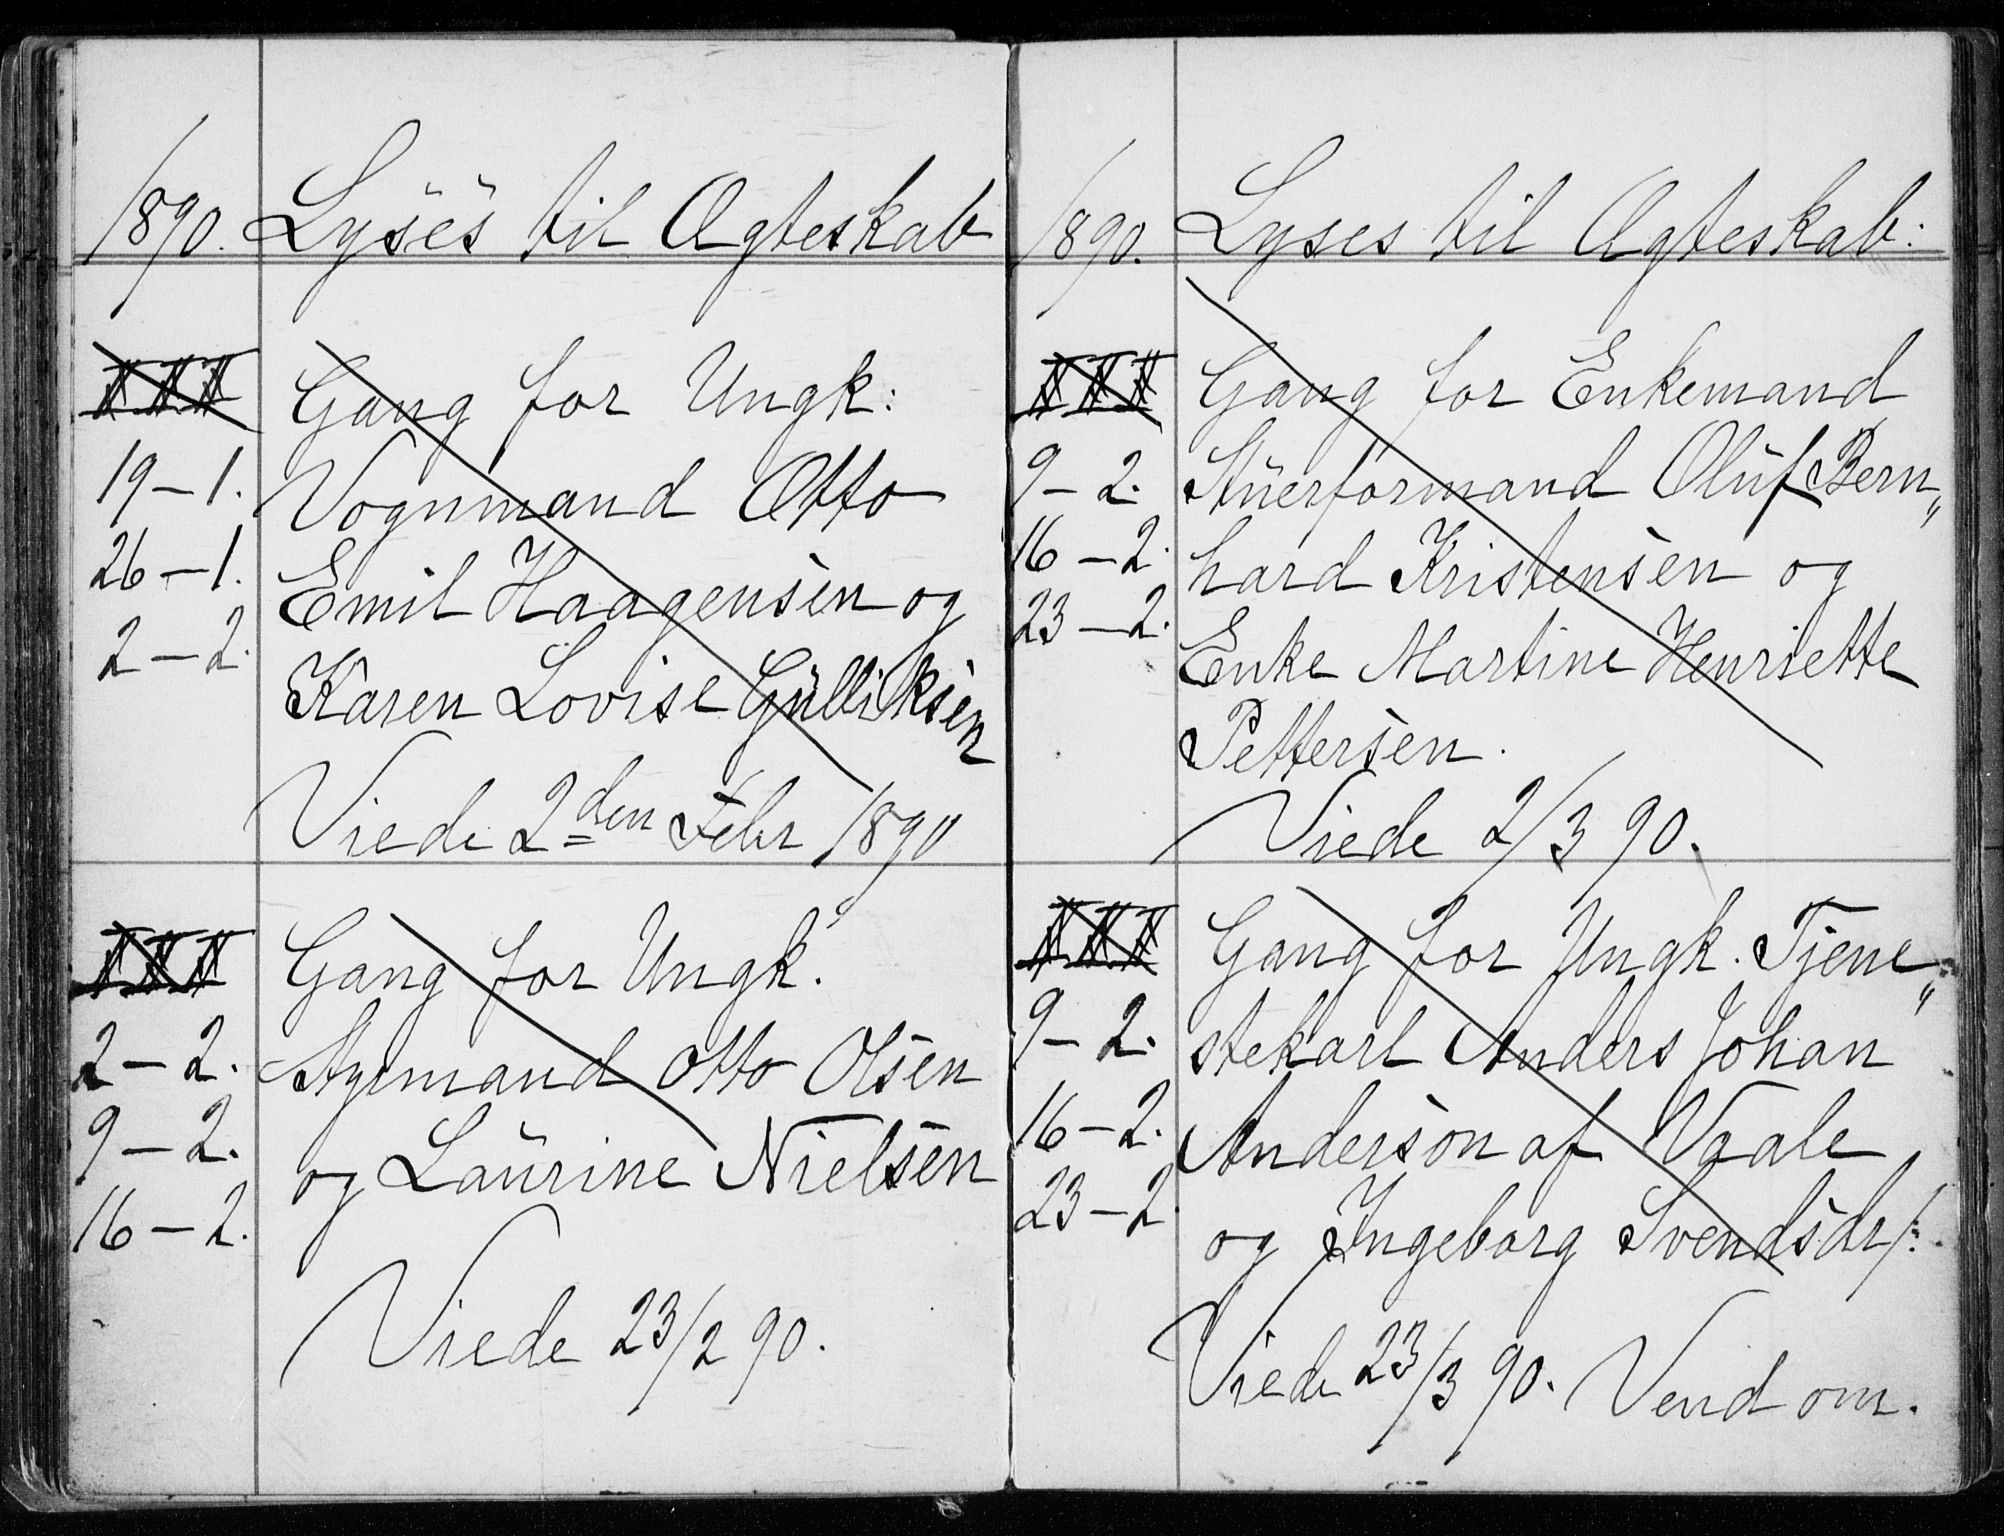 1890. Lyses til Ægteskab
III Gang for Ungk:
19–1. Vognmand Otto
26–1. Emil Haagensen og
2–2. Karen Lovise Gulliksen
Viede 2den Febr 1890
III Gang for Ungk.
2–2. Sømand Otto Olsen
9–2. og Laurine Nielsen
16–2.
Viede 23/2 90.
1890. Lyses til Ægteskab:
III Gang for Enkemand
9–2. Stuerformand Oluf Bern„
16–2. hard Kristensen og
23–2. Enke Martine Henriette
Pettersen.
Viede 2/3 90.
III Gang for Ungk. Tjene„
9–2. stekarl Anders Johan
16–2. Anderson af Vaale
23–2. og Ingeborg Svendsdr/:
Viede 23/3 90. Vend om.